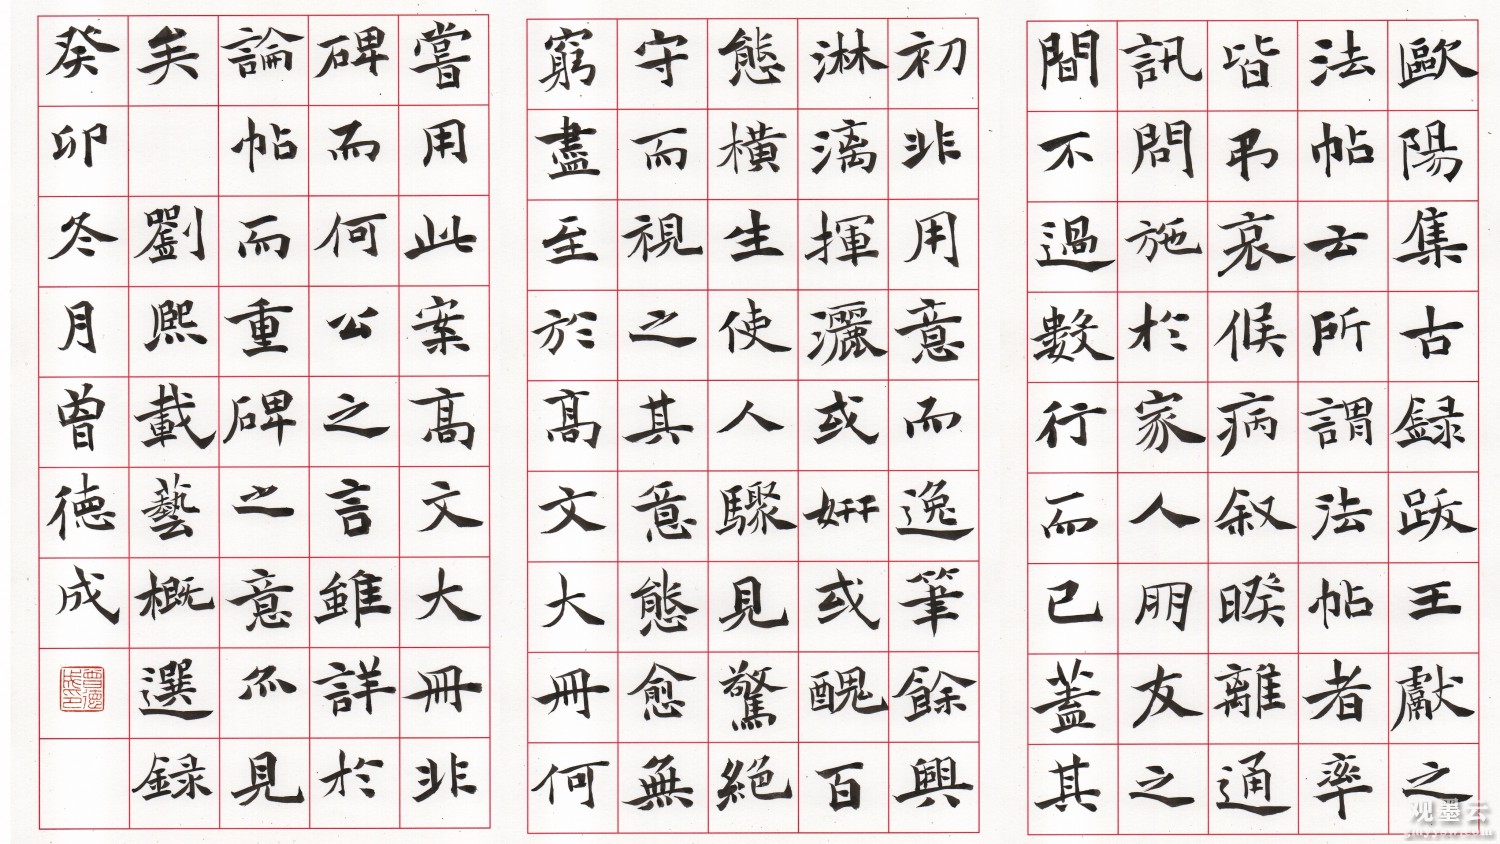 歐陽集古録跋王獻之
法帖云所謂法帖者率
皆弔哀候病叙睽離通
訊問施於家人朋友之
間不過數行而已蓋其
初非用意而逸筆餘興
淋漓揮灑或妍或醜百
態橫生使人驟見驚絕
守而視之其意態愈無
窮盡至於髙文大冊何
嘗用此案髙文大冊非
碑而何公之言雖詳於
論帖而重碑之意亦見
矣 劉熙載藝概選録
癸卯冬月曾德成
曾德成印
观墨云